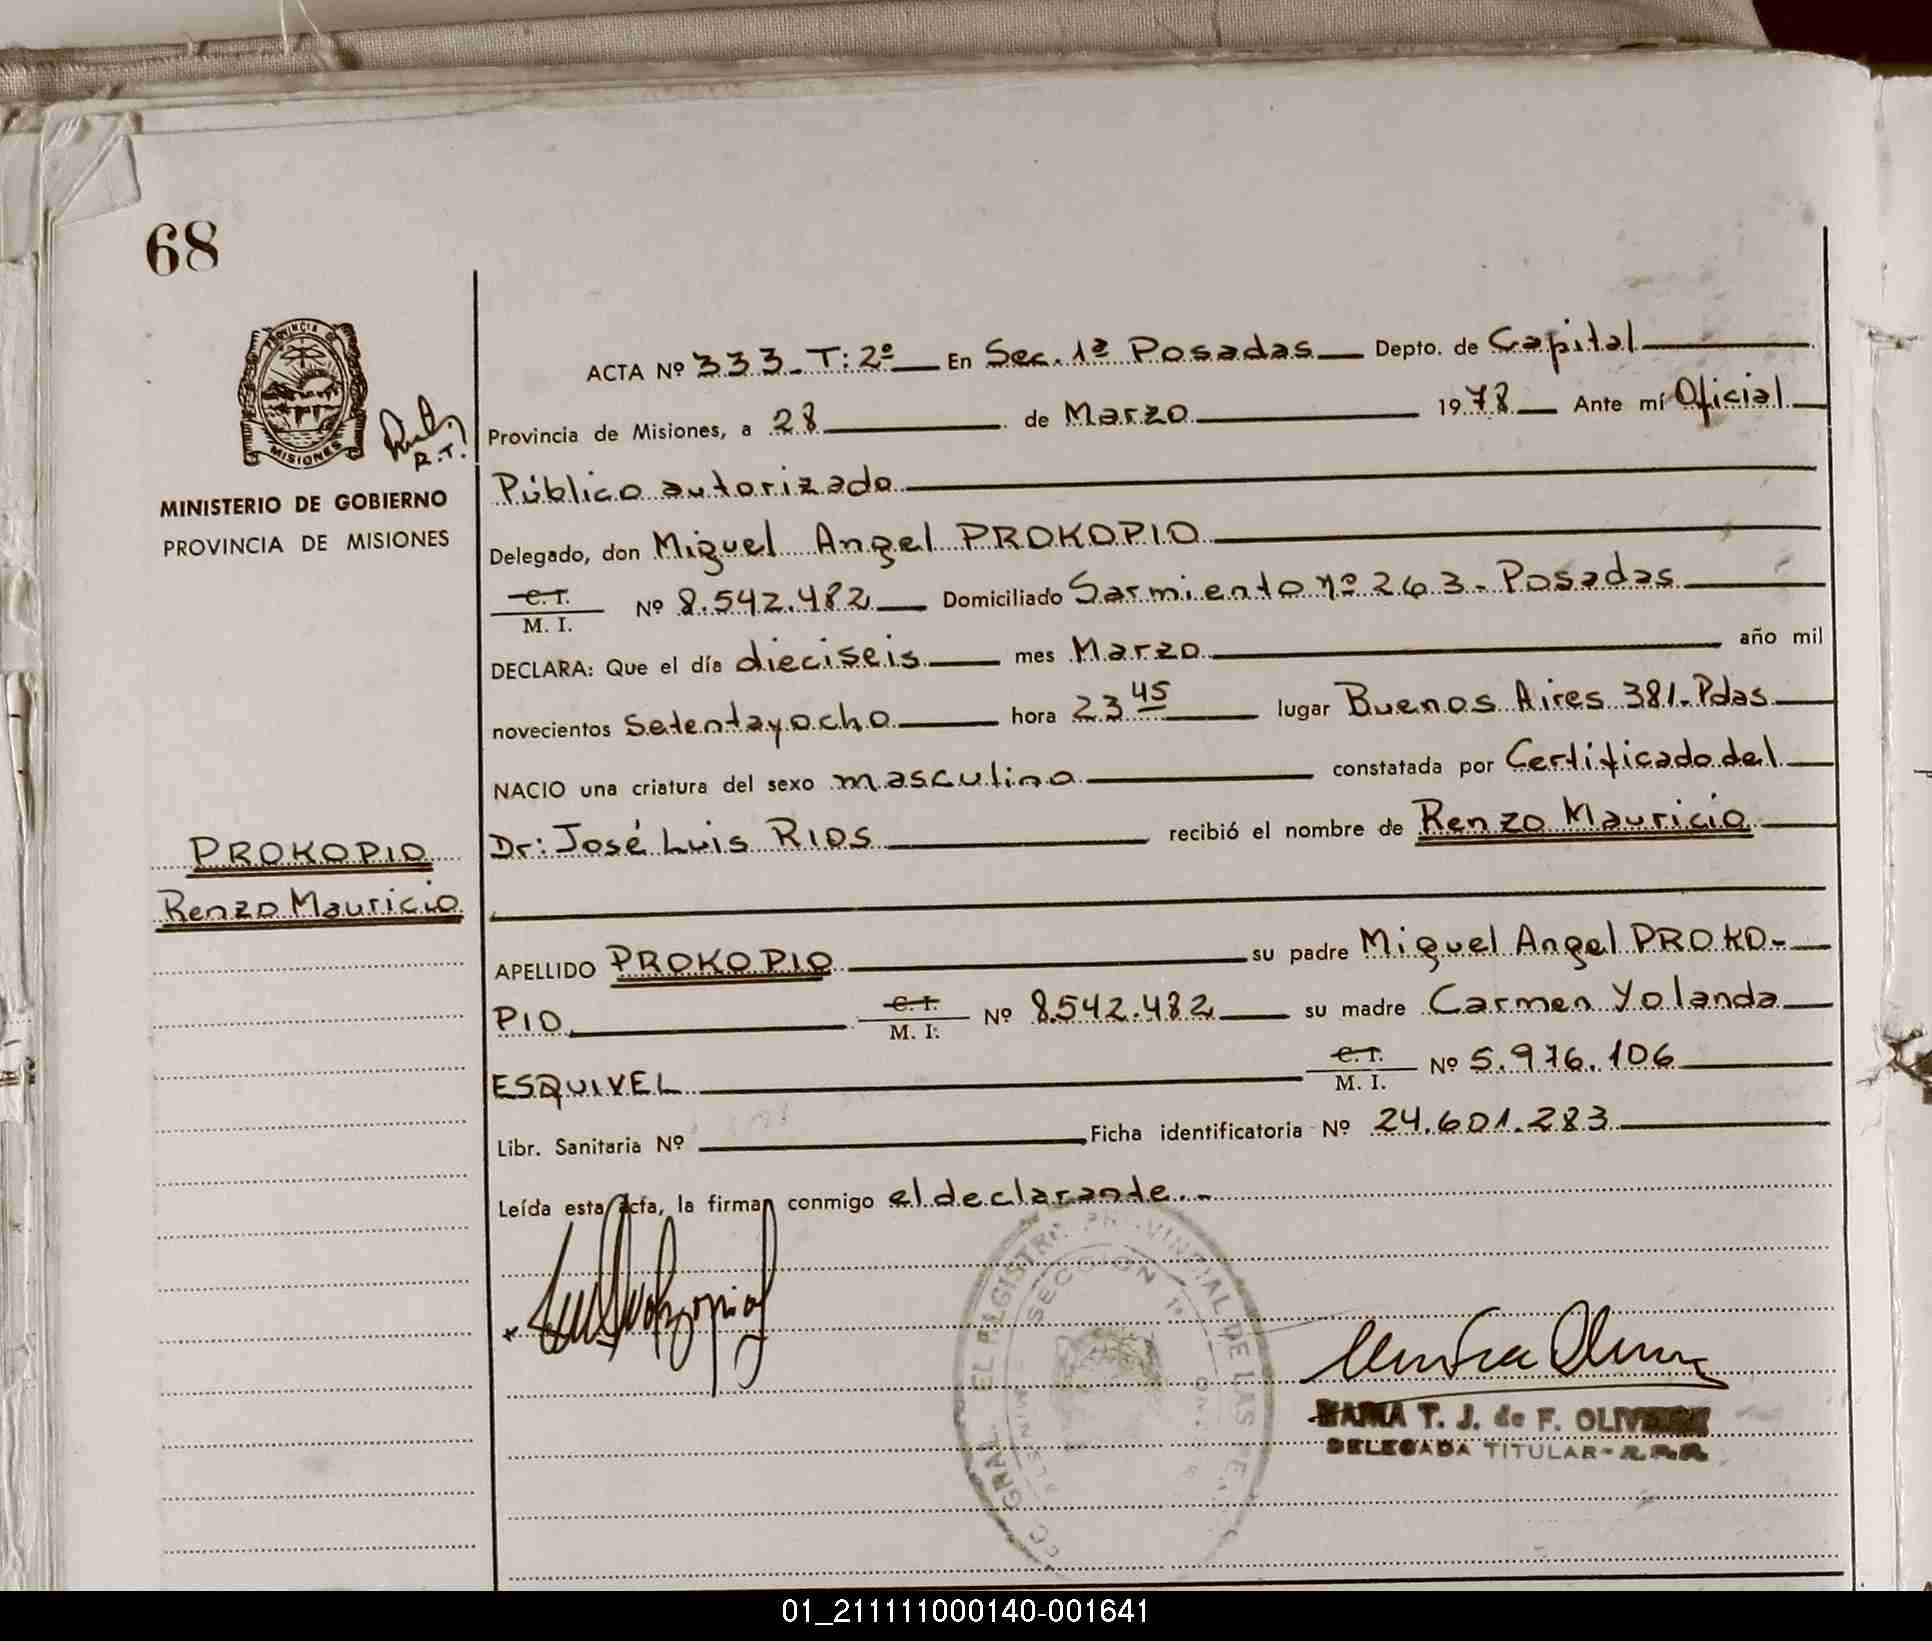 68
PROVINCIA DE
MISIONES
R.T.
MINISTERIO DE GOBIERNO
PROVINCIA DE MISIONES
PROKOPIO
Renzo Mauricio
ACTA Nº 333_ T: 2º En Sec. 1ª Posadas Depto. de Capital
Provincia de Misiones, a 28 de Marzo 1978 Ante mí Oficial
Público autorizado
Delegado, don Miguel Angel PROKOPIO
C. I.
M. I. Nº 8.542.482 Domiciliado Sarmiento nº 263 - Posadas
DECLARA: Que el día dieciseis mes Marzo año mil
novecientos Setentayocho hora 23 45 lugar Buenos Aires 381. Pdas
NACIO una criatura del sexo masculino constatada por Certificado del
Dr: José Luis RIOS recibió el nombre de Renzo Mauricio
APELLIDO PROKOPIO su padre Miguel Angel PROKO-
PIO C. I.
M. I: Nº 8.542.482 su madre Carmen Yolanda
ESQUIVEL C. I.
M. I. Nº 5.976.106
Libr. Sanitaria Nº Ficha identificatoria Nº 24.601.283
Leída esta acta, la firman conmigo el declarante. -
GRAL. EL REGISTRO PROVINCIAL DE LAS
SECCION 1ª
MARIA T. J. de F. OLIVERA
DELEGADA TITULAR - R.P.P.
01_211111000140-001641